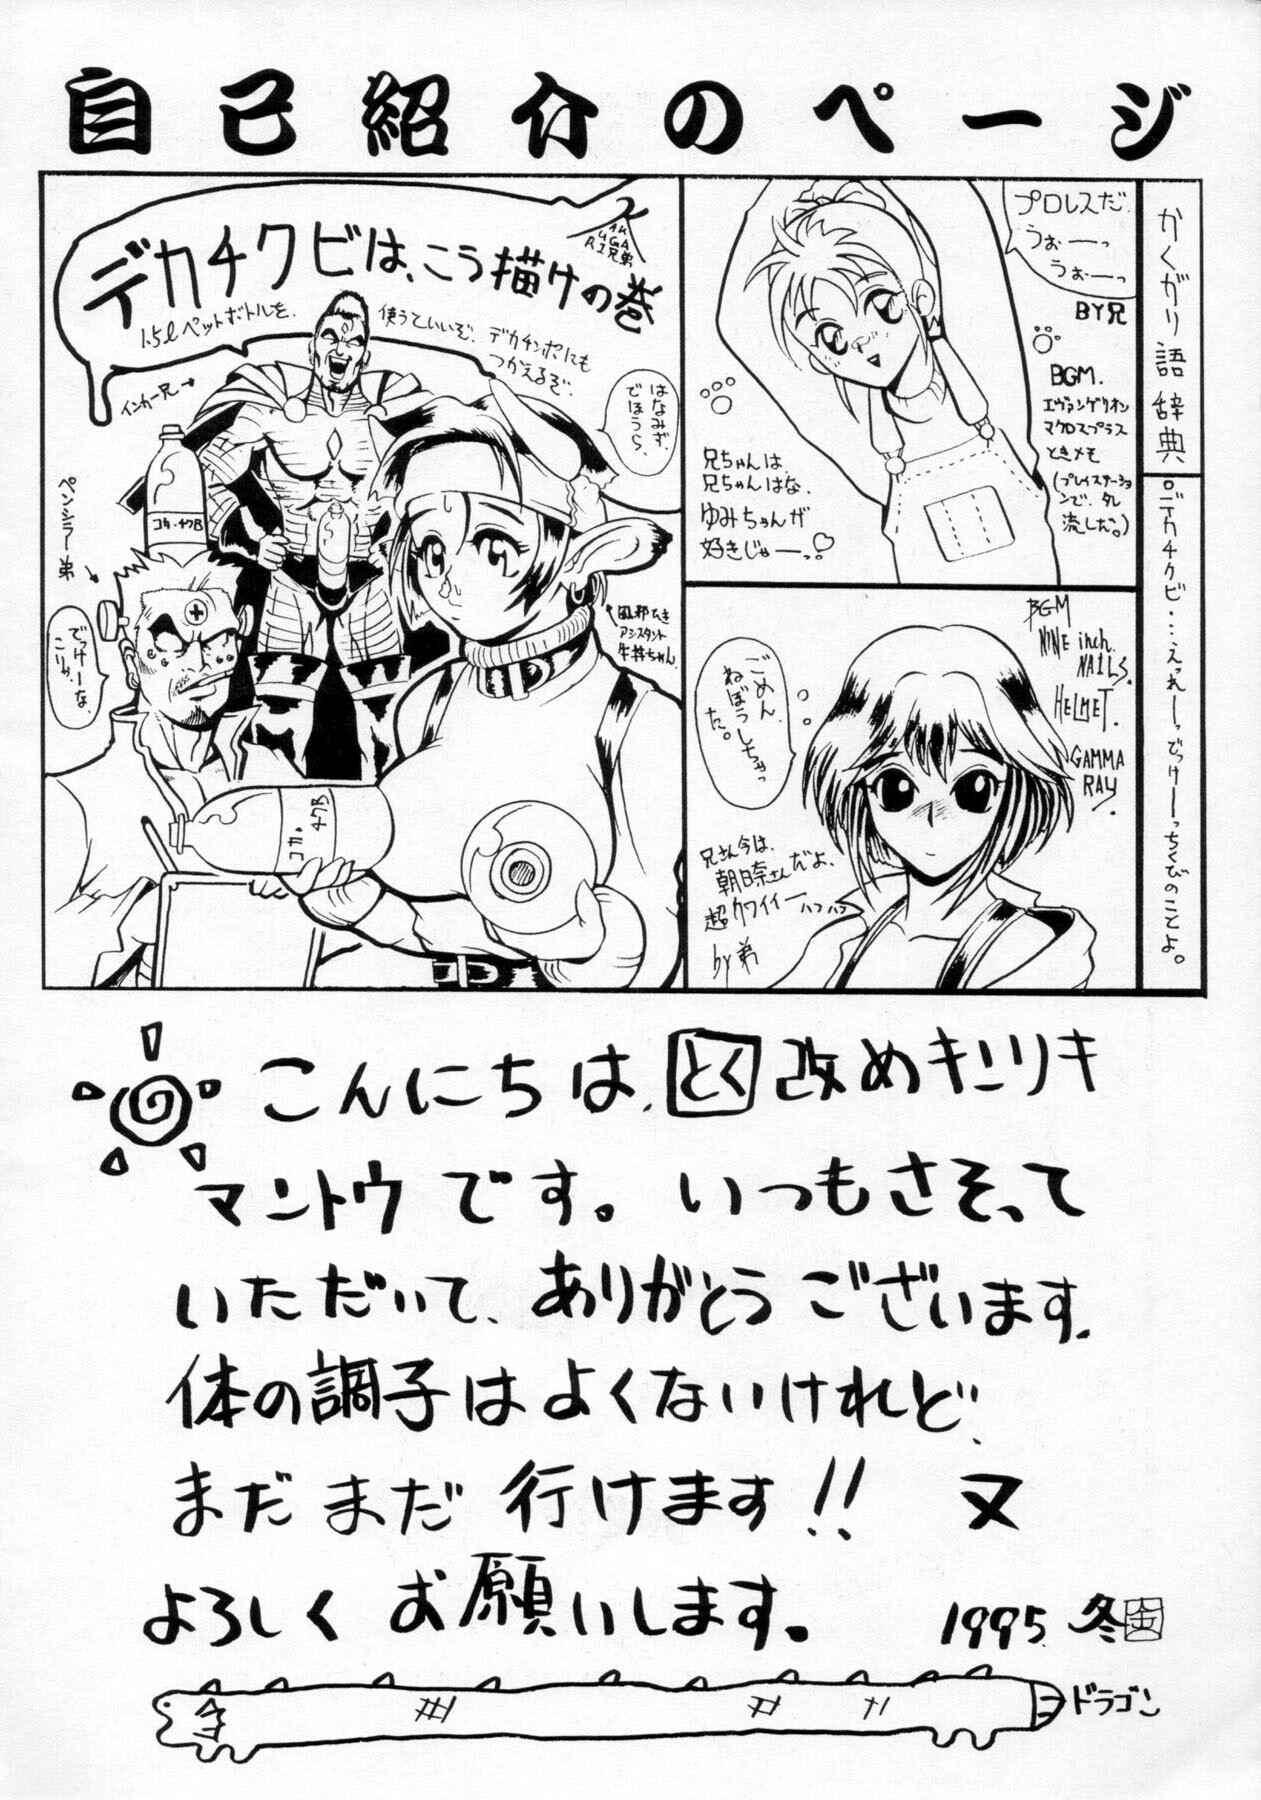 自己紹介のページ
デカチクビは、こう描けの巻
1.5ℓペットボトルを、
使うといいぞ、デカチンポにも
つかえるぞ。
インカー兄→
はなみず、
でほうら、
ペンシラー弟→
でっけーな
こりゃ
コカ・チクB
コカ・チクB
風邪ひき
アシスタント
牛丼ちゃん
プロレスだ、
うぉーーっ
うぉーーっ
BY兄
BGM.
エヴァンゲリオン
マクロスプラス
ときメモ
(プレイステーショ
ンで、タレ
流しだ。)
兄ちゃんは、
兄ちゃんはな、
ゆみちゃんが
好きじゃーっ♡
BGM
NINE inch
NAILS.
HELMET.
GAMMA
RAY.
ごめん、
ねぼうしちゃっ
た。
兄さん今は、
朝日奈さんだよ、
超クワイイー ハフハフ
by弟
かくがり語辞典
。デカチクビ…えっれーっでっけーっちくびのことよ。
こんにちは、とく改めキンリキ
マントウです。いつもさそって
いただいて、ありがとうございます、
体の調子はよくないけれど、
まだまだ行けます!! 又
よろしくお願いします。
1995. 冬 金
ドラゴン